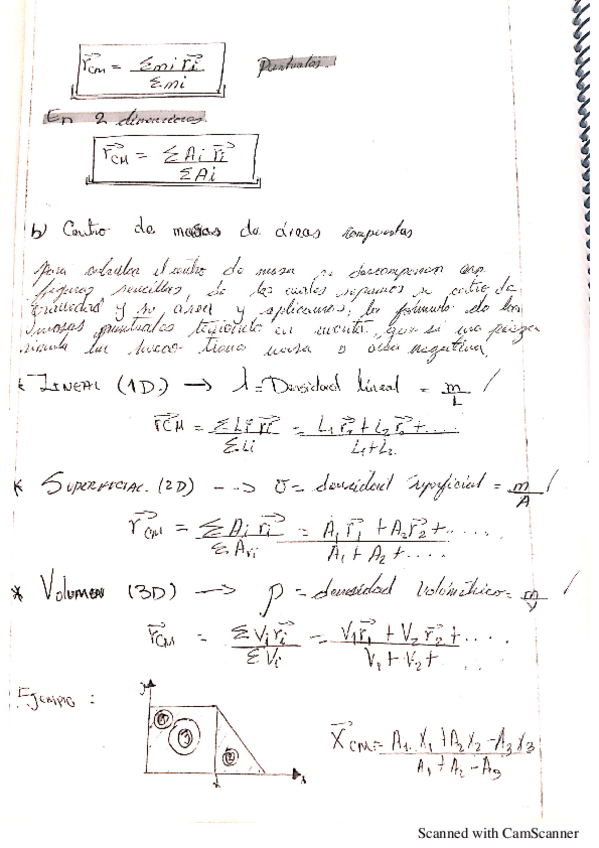 r⃗CM = Σmi r⃗i / Σmi Puntuales.
En 2 dimensiones.
r⃗CM = ΣAi r⃗i / ΣAi
b) Centro de masas de áreas compuestas
Para calcular el centro de masa se descomponen en
figuras sencillas, de las cuales sepamos su centro de
gravedad y su área y aplicamos la fórmula de las
masas puntuales teniendo en cuenta, que si una pieza
tiene masa o área negativa.
LINEAL (1D.) → λ = Densidad lineal = m/L
r⃗CM = ΣLi r⃗i / ΣLi = L1 r⃗1 + L2 r⃗2 + .... / L1 + L2
* SUPERFICIAL. (2D) --> σ = densidad superficial = m/A
r⃗CM = ΣAi r⃗i / ΣAri = A1 r⃗1 + A2 r⃗2 + ..... / A1 + A2 + ....
* VOLUMEN (3D) → ρ = densidad volumétrica = m/V
r⃗CM = ΣVi r⃗i / ΣVi = V1 r⃗1 + V2 r⃗2 + .... / V1 + V2 + ....
EJEMPLO :
y
1 3 2
x
X⃗CM = A1 X1 + A2 X2 - A3 X3 / A1 + A2 - A3
Scanned with CamScanner